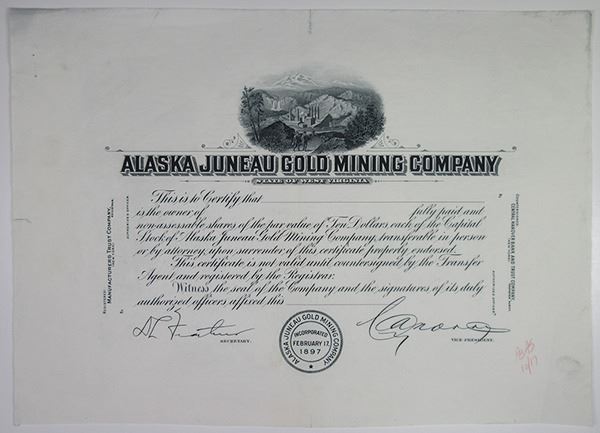 ALASKA JUNEAU GOLD MINING COMPANY
STATE OF WEST VIRGINIA
This is to Certify that
is the owner of fully paid and
nonassessable shares of the par value of Ten Dollars, each of the Capital
Stock of Alaska Juneau Gold Mining Company, transferable in person
or by attorney, upon surrender of this certificate properly endorsed.
This certificate is not valid until countersigned by the Transfer
Agent and registered by the Registrar.
Witness, the seal of the Company and the signatures of its duly
authorized officers affixed this
SECRETARY.
VICE PRESIDENT.
ALASKA JUNEAU GOLD MINING COMPANY
INCORPORATED
FEBRUARY 17,
1897
REGISTERED:
MANUFACTURERS TRUST COMPANY,
(NEW YORK)
REGISTRAR.
BY
AUTHORIZED OFFICER.
COUNTERSIGNED:
CENTRAL HANOVER BANK AND TRUST COMPANY,
(NEW YORK)
TRANSFER AGENT.
BY
AUTHORIZED OFFICER.